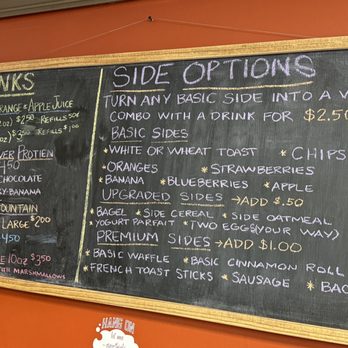 NKS
RANGE & APPLE JUICE
OZ) $2.50 REFILLS 50¢
OZ) $3.50 REFILLS $1.00
VER PROTIEN
4.50
CHOCOLATE
RY-BANANA
OUNTAIN
LARGE $2.00
$4.50
E 10OZ $3.50
WITH MARSHMALLOWS
SIDE OPTIONS
TURN ANY BASIC SIDE INTO A V
COMBO WITH A DRINK FOR $2.50
BASIC SIDES
*WHITE OR WHEAT TOAST *CHIPS
*ORANGES *STRAWBERRIES
*BANANA *BLUEBERRIES *APPLE
UPGRADED SIDES → ADD $.50
*BAGEL *SIDE CEREAL *SIDE OATMEAL
*YOGURT PARFAIT *TWO EGGS (YOUR WAY)
PREMIUM SIDES → ADD $1.00
*BASIC WAFFLE *BASIC CINNAMON ROLL
*FRENCH TOAST STICKS *SAUSAGE *BAC
HANG ON